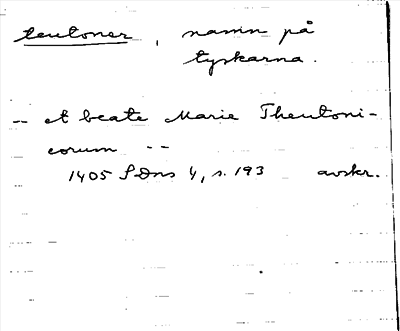 teutoner, namn på
tyskarna.
-- et beate Marie Theutoni-
corum --
1405 SDns 4, s. 193 avskr.